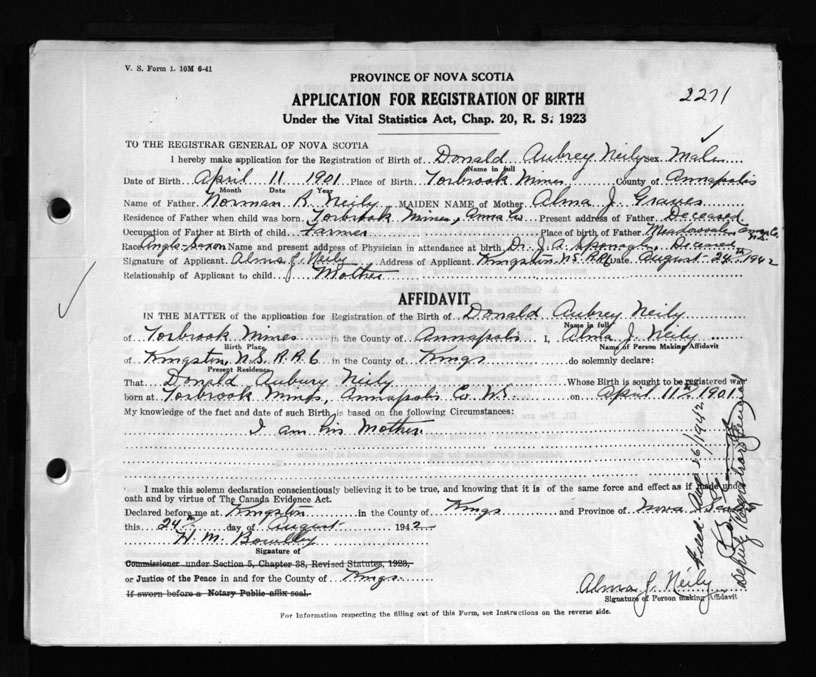 V. S. Form 1. 10M 6-41
PROVINCE OF NOVA SCOTIA
APPLICATION FOR REGISTRATION OF BIRTH
2271
Under the Vital Statistics Act, Chap. 20, R. S. 1923
TO THE REGISTRAR GENERAL OF NOVA SCOTIA
I hereby make application for the Registration of Birth of Donald Aubrey Neily Sex Male
Name in full
Date of Birth April 11 1901 Place of Birth Torbrook Mines County of Annapolis
Month Date Year
Name of Father Norman R. Neily MAIDEN NAME of Mother Alma J. Graves
Residence of Father when child was born Torbrook Mines, Anna Co. Present address of Father Deceased
Occupation of Father at Birth of child Farmer Place of birth of Father Meadowvale Anna Co. N.S.
Race Anglo-Saxon Name and present address of Physician in attendance at birth Dr. J. A. Sponagle, Deceased
Signature of Applicant Alma J. Neily Address of Applicant Kingston N.S. R.R.6 Date August 24th 1942
Relationship of Applicant to child Mother
AFFIDAVIT
IN THE MATTER of the application for Registration of the Birth of Donald Aubrey Neily
Name in full
of Torbrook Mines in the County of Annapolis I, Alma J. Neily
Birth Place Name of Person Making Affidavit
of Kingston, N.S. R.R.6 in the County of Kings do solemnly declare:
Present Residence
That Donald Aubury Neily Whose Birth is sought to be registered was
born at Torbrook Mines, Annapolis Co. N.S. on April 11th 1901
My knowledge of the fact and date of such Birth is based on the following Circumstances:
I am his Mother
I make this solemn declaration conscientiously believing it to be true, and knowing that it is of the same force and effect as if made under
oath and by virtue of The Canada Evidence Act.
Declared before me at Kingston in the County of Kings and Province of Nova Scotia
this 24th day of August 1942
H. M.
Signature of
Commissioner under Section 5, Chapter 38, Revised Statutes, 1923,
or Justice of the Peace in and for the County of Kings
If sworn before a Notary Public affix seal.
Alma J. Neily
Signature of Person making Affidavit
For Information respecting the filling out of this Form, see Instructions on the reverse side.
Filed Aug 26/1942
Deputy Registrar General